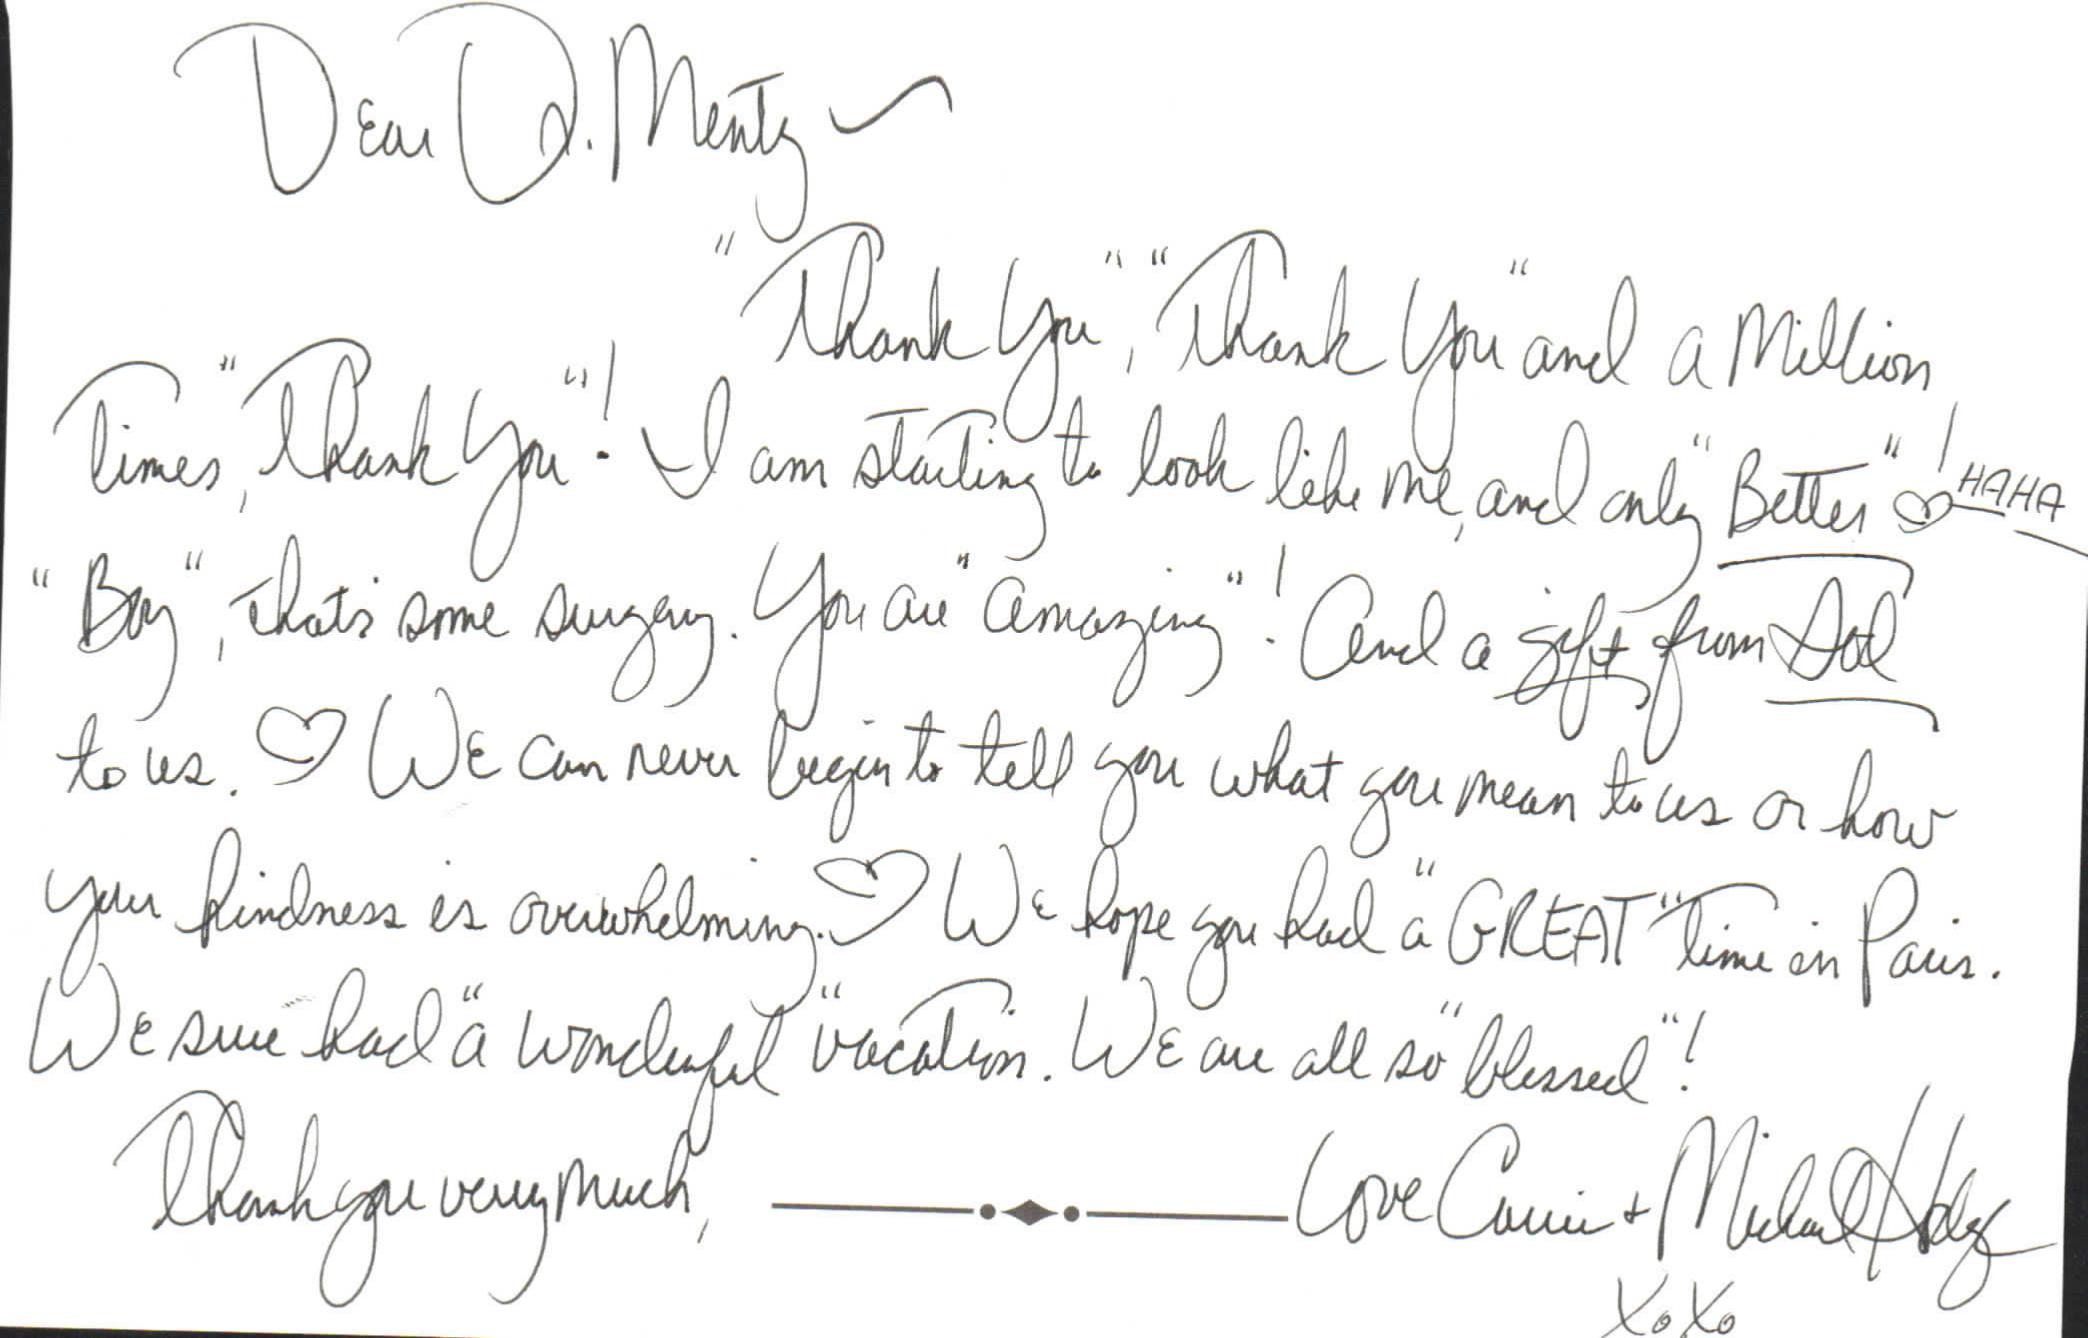 Dear Dr. Mentz ~
"Thank You", "Thank You" and a Million
Times, "Thank You"! I am starting to look like me, and only "Better"! ♡ HAHA
"Boy", that's some surgery. You are "amazing"! And a gift from God
to us. ♡ We can never begin to tell you what you mean to us or how
your kindness is overwhelming. ♡ We hope you had a "GREAT" Time in Paris.
We sure had "a wonderful" vacation. We are all so "blessed"!
Thank you very much,
Love Carrie + Michael
XoXo